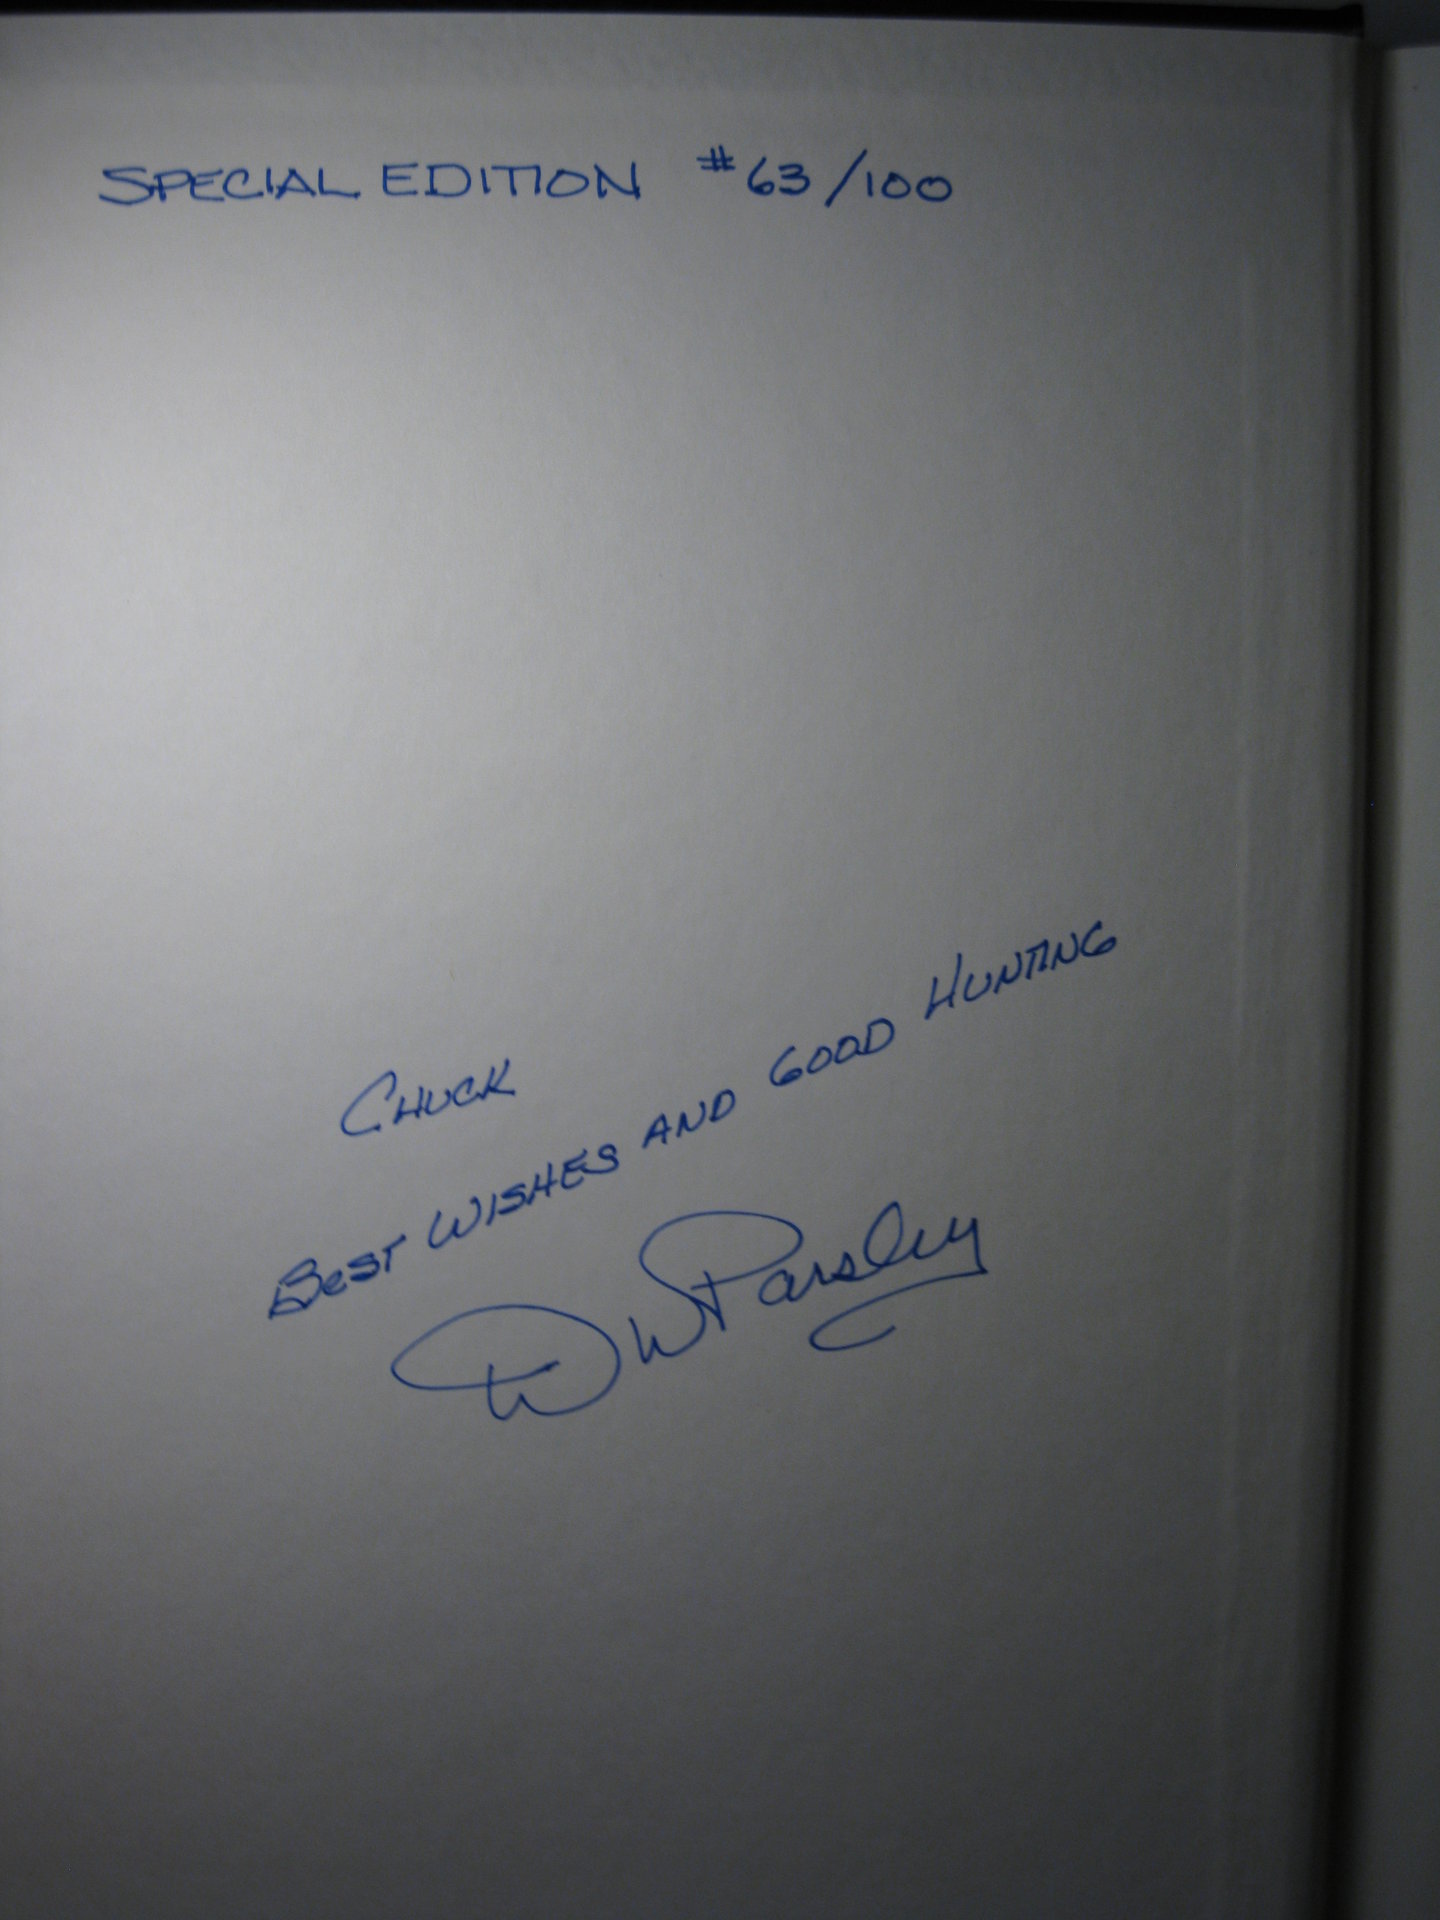 SPECIAL EDITION #63/100
CHUCK
BEST WISHES AND GOOD HUNTING
DW Parsley